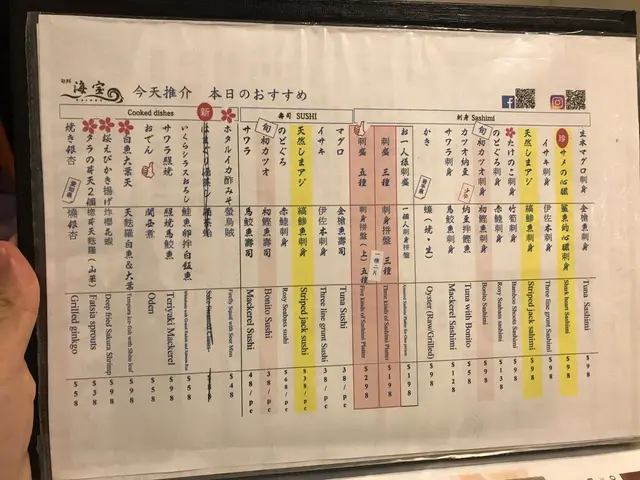 旬鮮 海宝
今天推介 本日のおすすめ
刺身 Sashimi
生本マグロ刺身 Tuna Sashimi $98
珍 サメの心臓 鯊魚的心臟刺身 Shark heart Sashimi $98
イサキ刺身 伊佐木刺身 Three line grunt Sashimi $98
天然しまアジ 縞鰺魚刺身 Striped jack sahimi $98
たけのこ刺身 竹筍刺身 Bamboo Shoots Sashimi $98
のどぐろ刺身 赤鯥刺身 Rosy Seabass sashimi $138
旬 初カツオ刺身 初鰹魚刺身 Bonito Sashimi $98
カツオ納豆 納豆拌鰹魚 Tuna with Bonito $58
サワラ刺身 馬鮫魚刺身 Mackerel Sashimi $128
かき 蠔(燒・生) Oyster (Raw/Grilled) $98
お一人様刺盛 一個人刺身拼盤 Assorted Sashimi Platter for One person $198
刺盛 三種 刺身拼盤 三種 Three kinds of Sashimi Platter $198
刺盛 五種 刺身拼盤(上)五種 Five kinds of Sashimi Platter $298
壽司 SUSHI
マグロ 金槍魚壽司 Tuna Sushi 38/pc
イサキ 伊佐木刺身 Three line grunt Sushi 38/pc
天然しまアジ 縞鰺魚刺身 Striped jack sushi $38/pc
のどぐろ 赤鯥刺身 Rosy Seabass sushi $68/pc
旬 初カツオ 初鰹魚壽司 Bonito Sushi 38/pc
サワラ 馬鮫魚壽司 Mackerel Sushi 48/pc
Cooked dishes
ホタルイカ酢みそ 螢烏賊 Firefly Squid with Sour Miso $48
新
いくらシラスおろし 鮭魚卵拌白鯷魚 $58
サワラ照燒 照燒馬鮫魚 Teriyaki Mackerel $98
おでん 關西煮 Oden $58
白魚大葉天 天麩羅白魚&大葉 Tempura Ice-fish with Shiso leaf $98
桜えびかき揚げ 炸櫻花蝦 Deep fried Sakura Shrimp $98
タラの芽天2個 楤芽天麩羅(山菜) Fatsia sprouts $38
焼き銀杏 燒銀杏 Grilled ginkgo $58